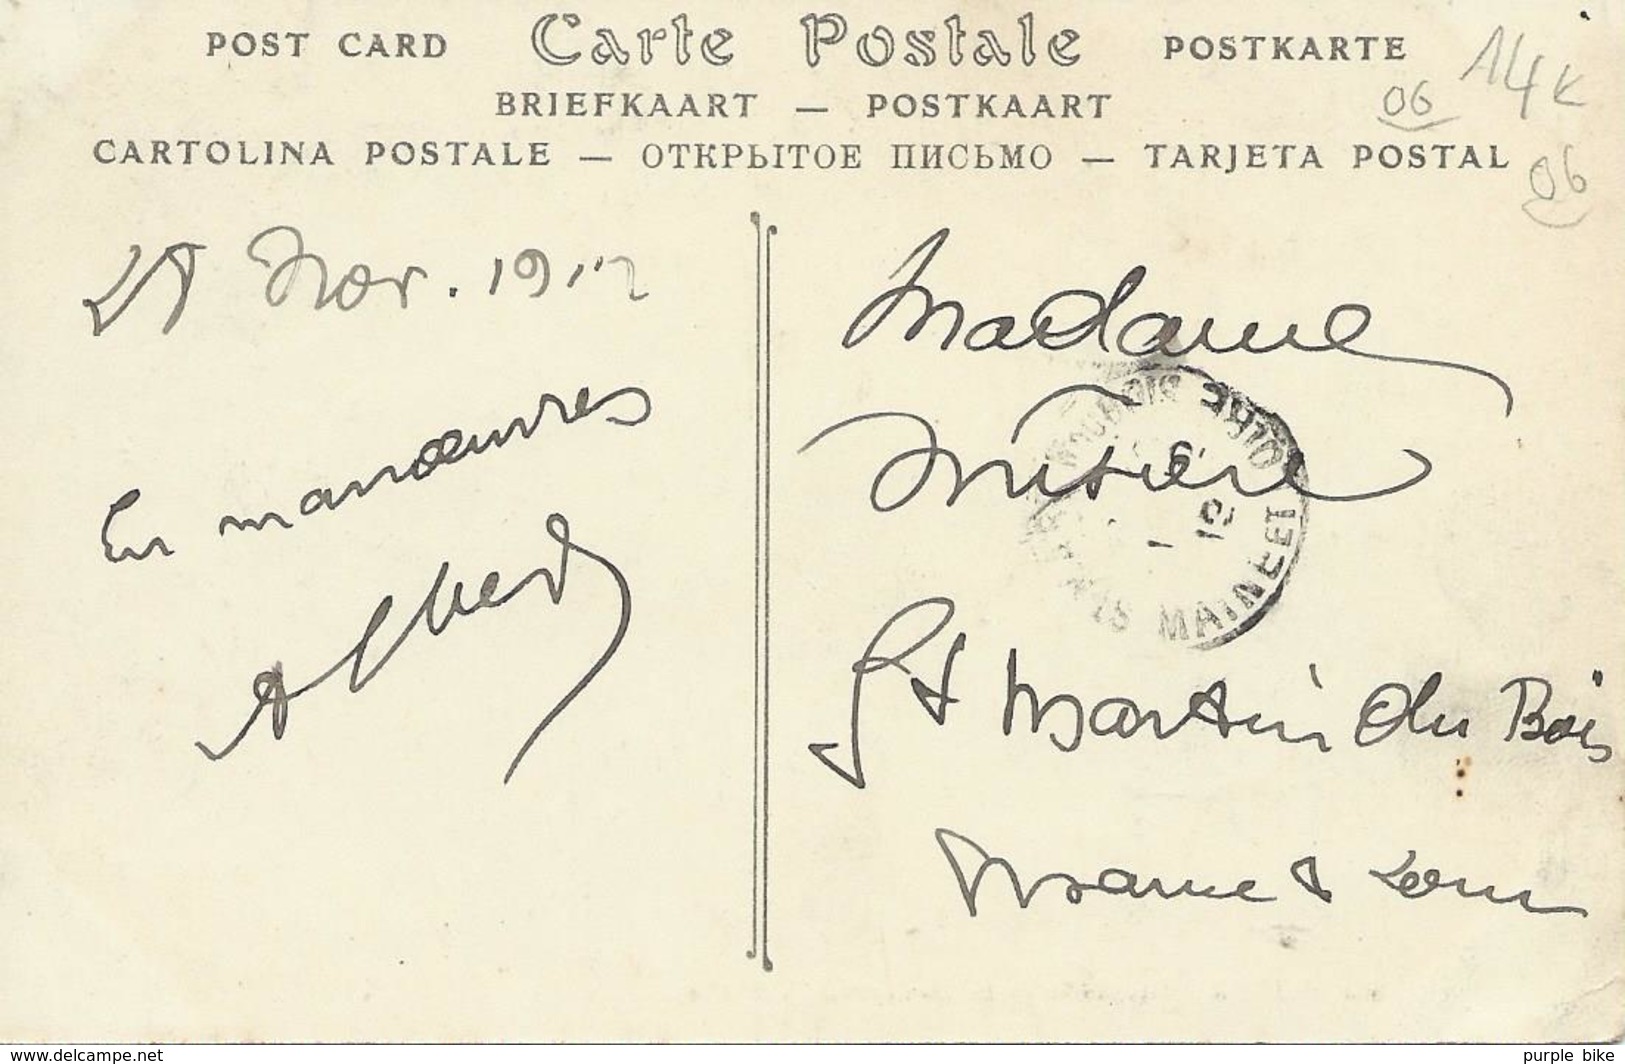 POST CARD Carte Postale POSTKARTE
14 K
BRIEFKAART — POSTKAART
06
CARTOLINA POSTALE — ОТКРЫТОЕ ПИСЬМО — TARJETA POSTAL
06
Nov. 1912
En manœuvres
Albert
Madame
Misière
St Martin du Bois
Maine & Loire
MAINE-ET-LOIRE
www.delcampe.net
purple bike